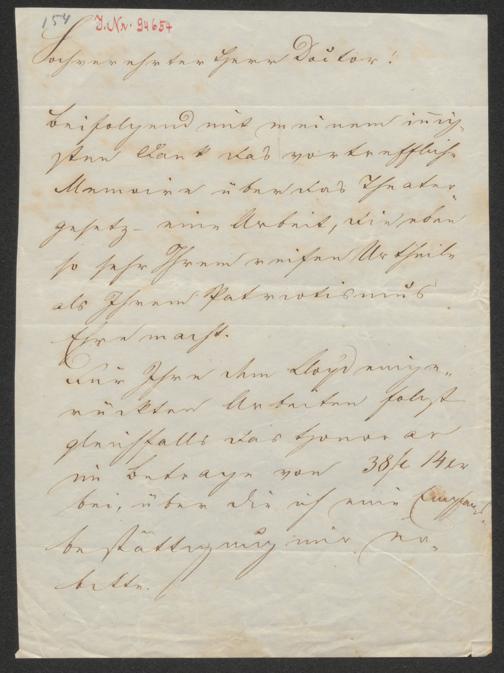 154
J.Nr. 94654
Hochverehrter Herr Doctor!
Beifolgend mit meinem innig-
sten Dank das vortreffliche
Memoire über das Theater-
gesetz – eine Arbeit, die eben
so sehr Ihrem reifen Urtheile
als Ihrem Patriotismus
Ehre macht.
Für Ihre dem Lloyd einge-
rückten Arbeiten folgt
gleichfalls das Honorar
im Betrage von 38 f 14 kr
bei, über die ich eine Empfangs-
bestättigung mir er-
bitte.